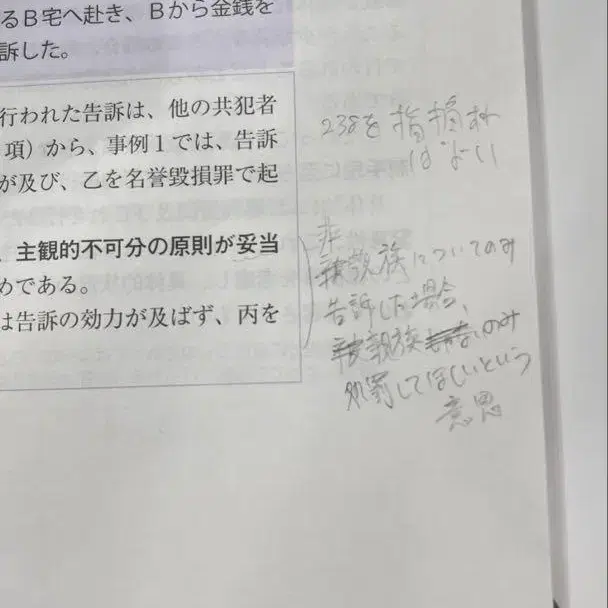 るB宅へ赴き、Bから金銭を
訴した。
行われた告訴は、他の共犯者
項）から、事例1では、告訴
が及び、乙を名誉毀損罪で起
、主観的不可分の原則が妥当
めである。
は告訴の効力が及ばず、丙を
238を指摘すれ
はよい
非
親族についてのみ
告訴した場合、
親族のみ
処罰してほしいという
意思